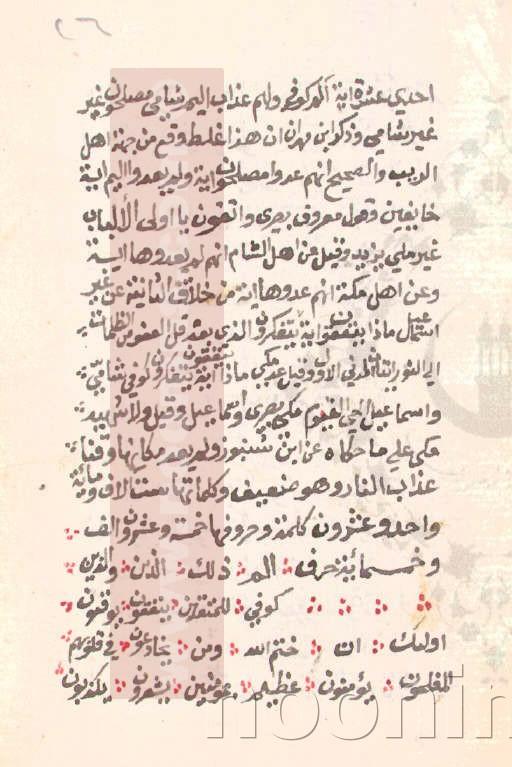 ٢٦
احدى عشرة اية الم كوفي ولهم عذاب اليم شامي مصلحون غير
غير شامي وذكر ابن مهران ان هذا غلط وقع من جهة اهل
والصحيح انهم عدوا مصلحون اية ولم يعدوا اليم اية
خايفين وقولا معروفا بصرى واتقون يا اولى الألباب
غير مكي يزيد وقيل عن اهل الشام انهم لم يعدوها اية
وعن اهل مكة انهم عدوها اية من خلاق الثانية عن غير
اسماعيل ماذا ينفقون اية يتفكرون والذي بعد قل العفو من الظلمات
الى النور المدني الاول وقيل عد مكي ماذا ينفقون اية يتفكرون كوفي شامي
واسماعيل الحي القيوم مكي بصرى واسماعيل وقيل ولا شهيد
مكي على ما حكاه عن ابن شنبوز ولم يعد مكانها وقنا
عذاب النار وهو ضعيف وكلماتها ستة الاف ومائة
واحد وعشرون كلمة وحروفها خمسة وعشرون الف
وخمسمائة حرف الم ذلك الذين والذين
كوفي للمتقين ينفقون يوقنون
اولئك ان ختم الله ومن يخادعون في قلوبهم
المفلحون يؤمنون عظيم بمؤمنين يشعرون يكذبون
noorin